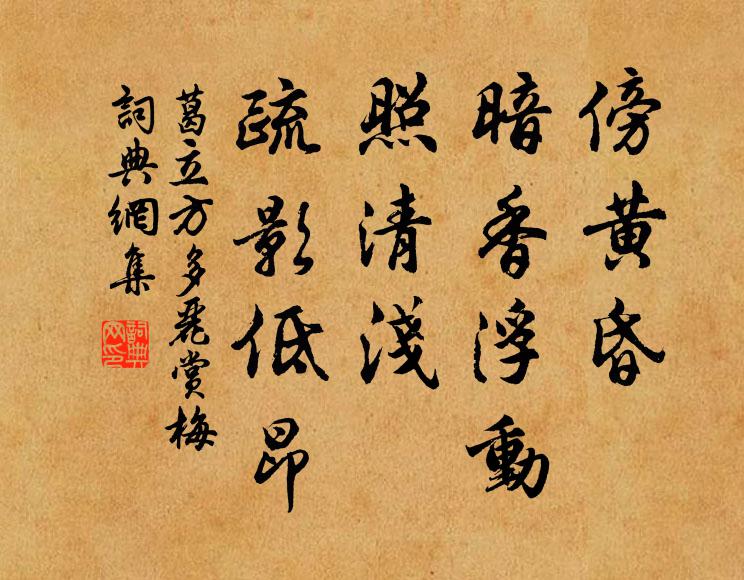 傍黄昏
暗香浮動
照清淺
疏影低昂
葛立方多麗賞梅
詞典網集
詞典
网印